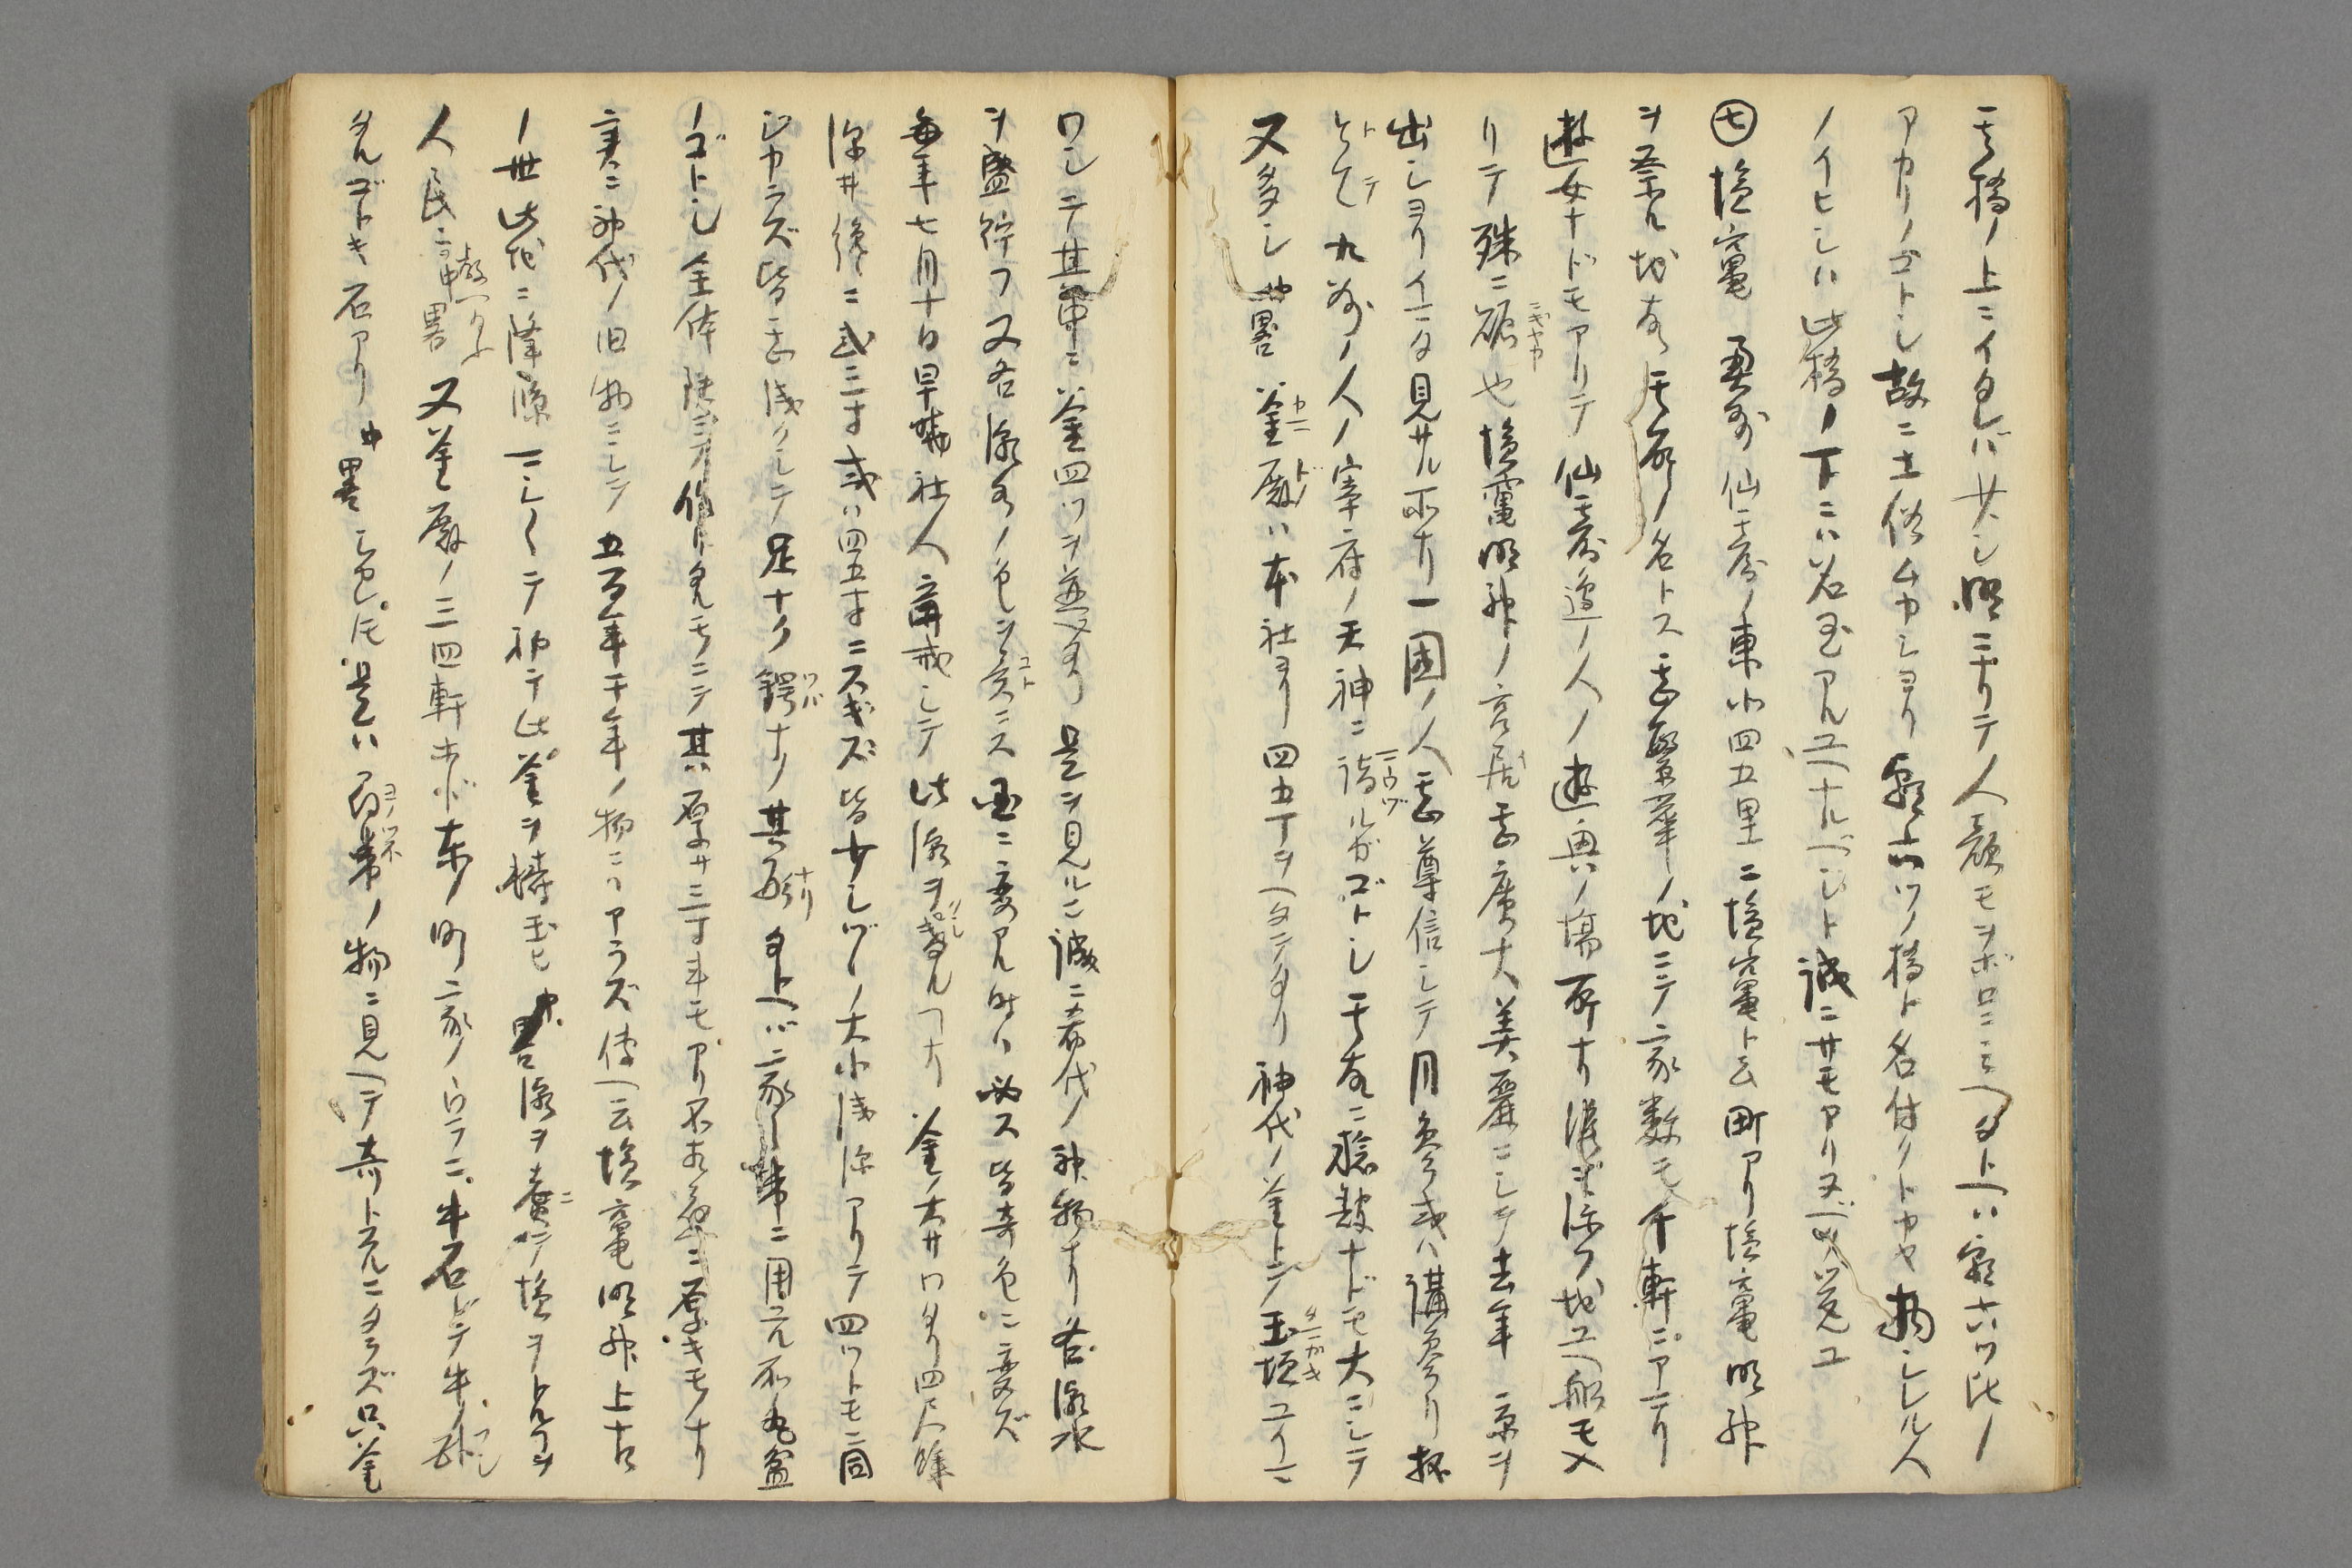 其橋ノ上ニイタレバ廿人明ニナリテ人顔モヲボロニミヘタトヘハ朝六ツ比ノ
アカリノゴトシ故ニ土俗ムカシヨリ朝六ツノ橋ト名付クトカヤ物シレル人
ノイヒシハ此橋ノ下ニハ名玉アルユヘナルベシト誠ニサモアリヌベク覚ユ
㊆塩竈 奥州仙臺ノ東小四五里ニ塩竈ト云町アリ塩竈明神
ヲ祭ル地故其所ノ名トス甚繁華ノ地ニテ家数モ千軒ニアマリ
遊女ナドモアリテ仙臺邊ノ人ノ遊興ノ場所ナリ湊ヲ添フ地ユヘ船モ入
リテ殊ニ賑也塩竈明神ノ宮居甚廣大美麗ニシテ去年京ヲ
出シヨリイマタ見サル所ナリ一國ノ人甚尊信シテ月参或ハ講参リ抔
トテ九州ノ人ノ宰府ノ天神ニ詣ルガゴトシ其故ニ繪馬ナドモ大ニシテ
又多シ中畧釜殿ハ本社ヨリ四五丁ヲヘダテタリ神代ノ釜トテ玉垣ユリニ
ワシテ其中ニ釜四ツヲ並ヘタリ是ヲ見ルニ誠ニ希代ノ神物ナリ各潮水
ヲ盛貯フ又各潮水ノ色ヲ異ニス國ニ変アル時ハ必ス皆奇色ニ変ズ
毎年七月十日早朝社人齋戒シテ此潮ヲ替ルナリ釜ノ大サワタリ四尺餘
深サ纔ニ二三寸或ハ四五寸ニスギズ皆少シヅヽノ大小浅深アリテ四ツトモニ同
ジカラズ皆甚浅クシテ足ナク鍔ナシ其形タトヘハ家ノ常ニ用ル不丸盆
ノゴトシ全体鉄ニテ作リタルモノニテ其厚サ三寸半モアリ不相應ニ厚キモノナリ
実ニ神代ノ旧物ニシテ五百年千年ノ物ニハアラズ傳ヘ云塩竈明神上古
ノ世此地ニ降臨マシ〱テ初テ此釜ヲ鋳玉ヒ中畧潮ヲ煮テ塩ヲトルコヲ
人民ニ教ヘ玉フ中畧又釜殿ノ三四軒ホド東ノ町家ノウラニ牛石トテ牛ノ臥
タルゴトキ石アリ中畧シカレ𪜈是ハ尋常ノ物ニ見ヘテ奇トスルニタラズ只釜